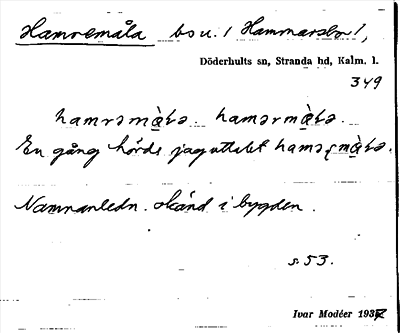 Hamremåla bsu. / Hammarsbo /,
Döderhults sn, Stranda hd, Kalm. l.
349
hamrəmɑ̀lə. hamərmɑ̀lə.
En gång hörde jag uttalet hamə mɑ̀lə.
Namnanledn. okänd i bygden.
s. 53.
Ivar Modéer 1937